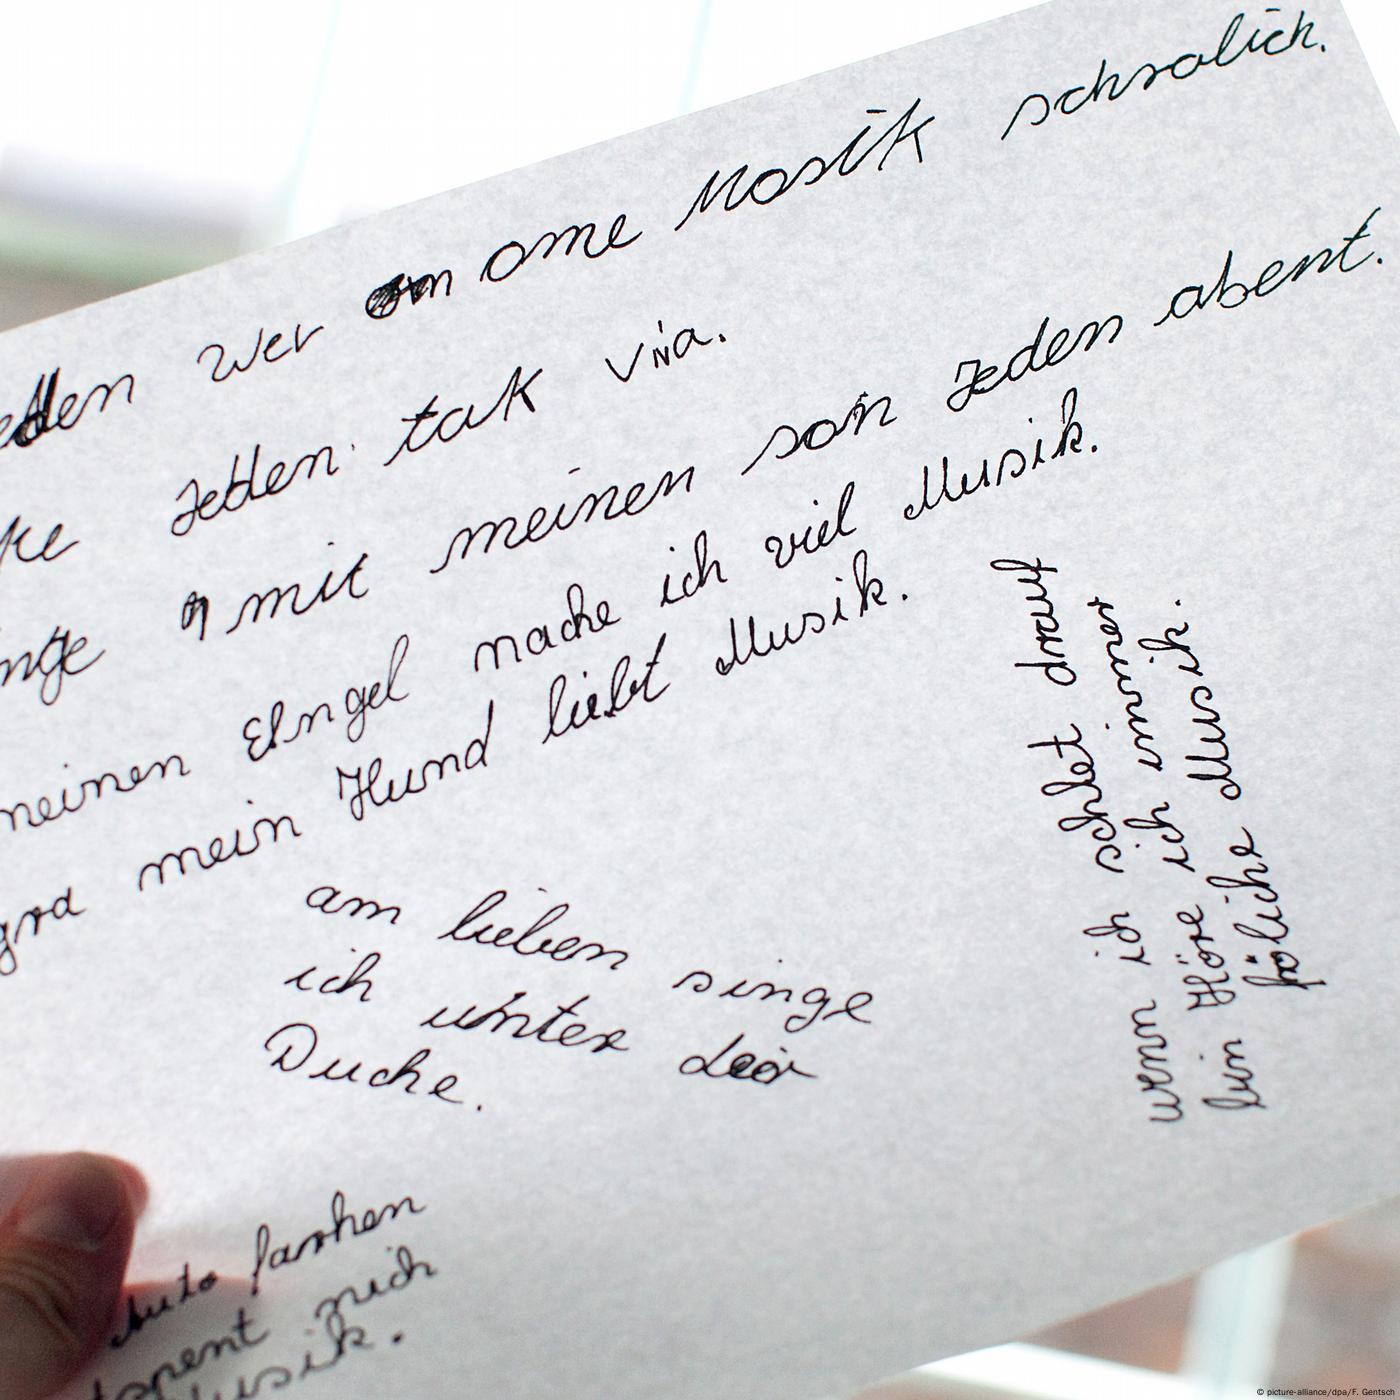 jedden wer om ome Mosik schralich.
ke Jedden tak via.
nge mit meinen son Jeden abent.
meinen Elngel mache ich viel Musik.
gra mein Hund liebt Musik.
am lieben singe
ich unter der
Duche.
wenn ich schlet drauf
bin Höre ich immer
fröliche Musik.
Auto farhen
tspent mich
Musik.
© picture-alliance/dpa/F. Gentsch